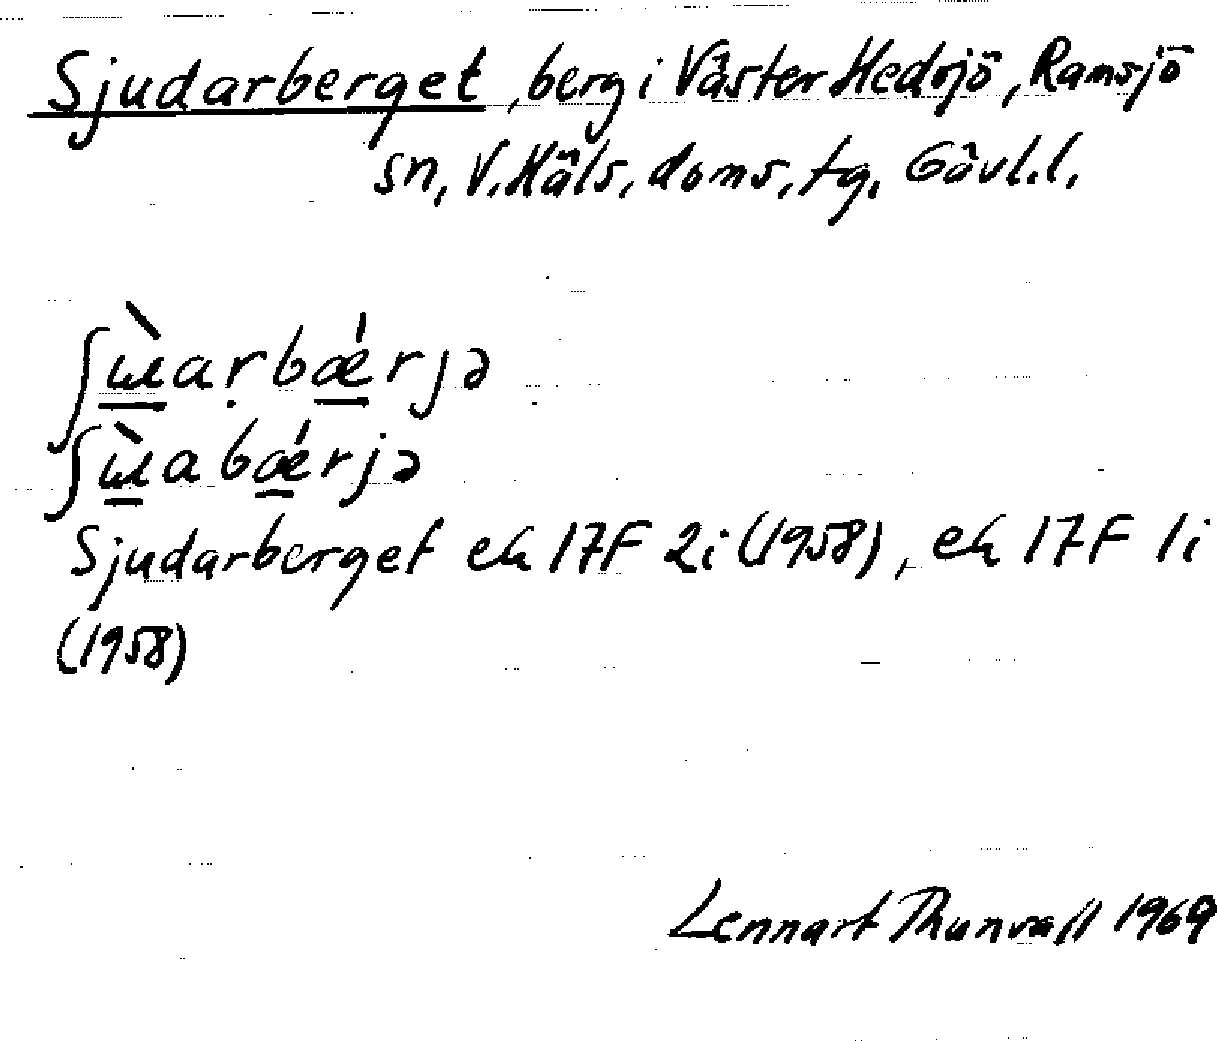 Sjudarberget, berg i Väster Hedsjö, Ramsjö
sn, V. Häls. doms. tg. Gävl. l.
ʃɯ̀aṛbǽrjə
ʃɯ̀abǽrjə
Sjudarberget ek 17F 2i (1958), ek 17F 1i
(1958)
Lennart Thunvall 1969